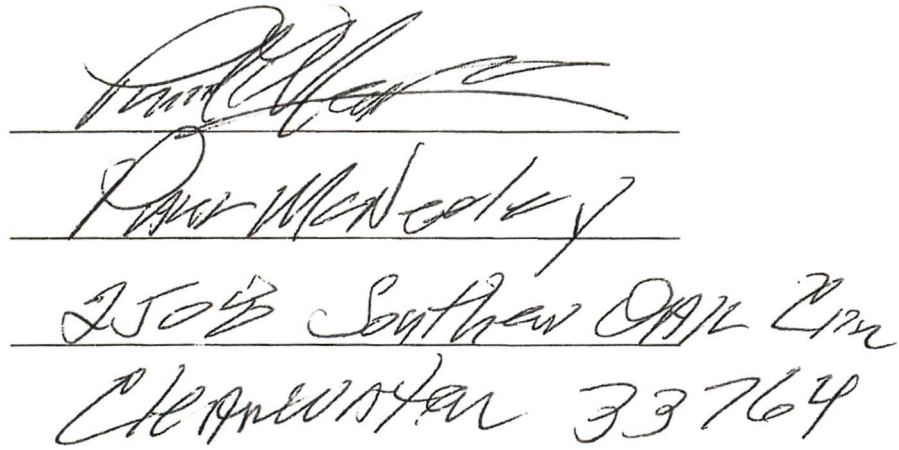 Paul McNeeley
2508 Southern Oak Cir
Clearwater 33764